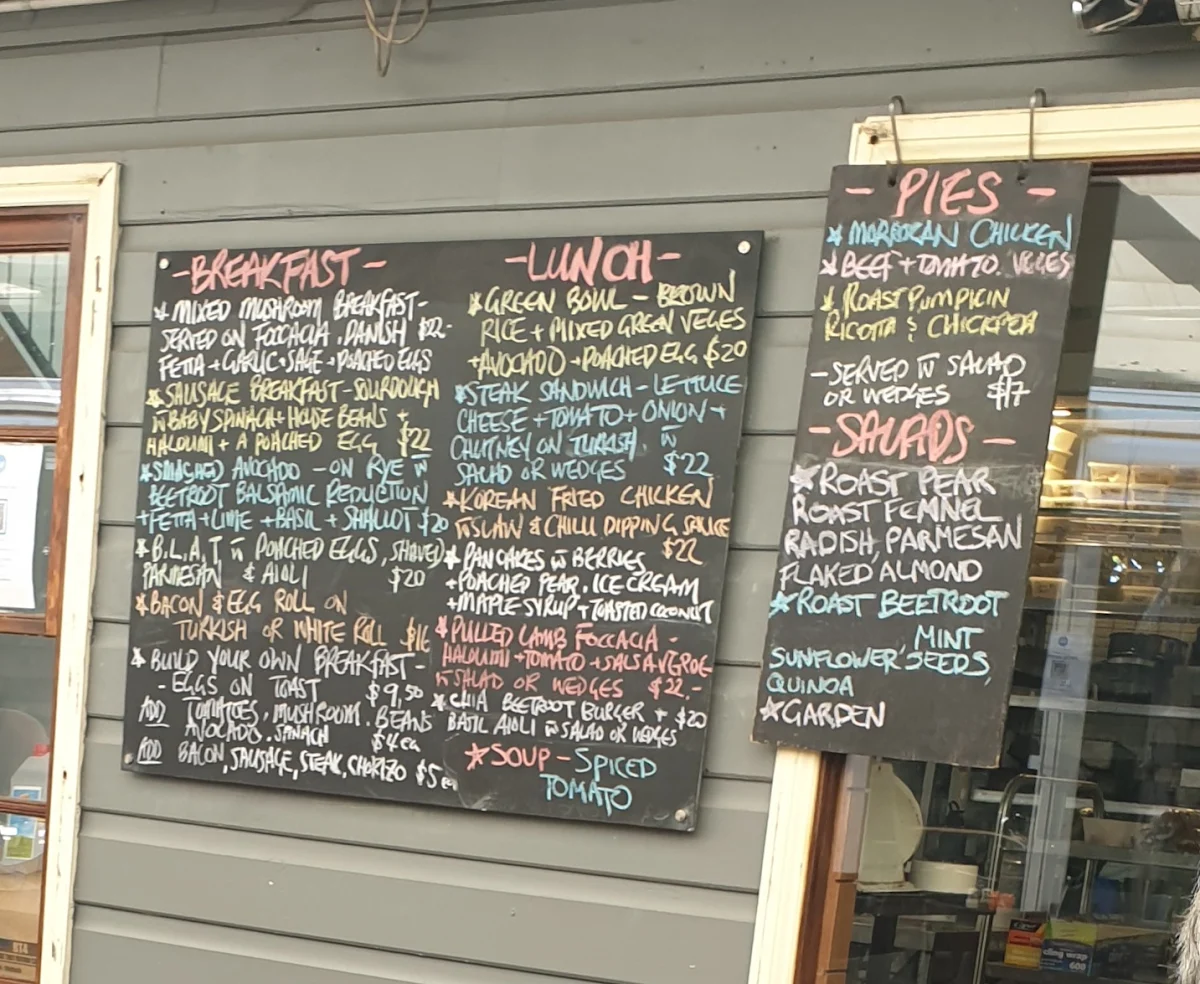 - BREAKFAST -
* MIXED MUSHROOM BREAKFAST -
SERVED ON FOCCACIA . DANISH $22-
FETTA + GARLIC + SAGE + POACHED EGGS
* SAUSAGE BREAKFAST - SOURDOUGH
W BABY SPINACH + HOUSE BEANS +
HALOUMI + A POACHED EGG $22
* SMASHED AVOCADO - ON RYE W
BEETROOT BALSAMIC REDUCTION
+ FETTA + LIME + BASIL + SHALLOT $20
* B.L.A.T W POACHED EGGS, SHAVED
PARMESAN & AIOLI $20
* BACON & EGG ROLL ON
TURKISH OR WHITE ROLL $16
* BUILD YOUR OWN BREAKFAST -
- EGGS ON TOAST $9,50
ADD TOMATOES, MUSHROOM . BEANS
AVOCADO . SPINACH $4 ea
ADD BACON, SAUSAGE, STEAK, CHORIZO $5 ea
- LUNCH -
* GREEN BOWL - BROWN
RICE + MIXED GREEN VEGES
+ AVOCADO + POACHED EGG $20
* STEAK SANDWICH - LETTUCE
CHEESE + TOMATO + ONION +
CHUTNEY ON TURKISH . W
SALAD OR WEDGES $22
* KOREAN FRIED CHICKEN
W SLAW & CHILLI DIPPING SAUCE
$22
* PANCAKES W BERRIES
+ POACHED PEAR . ICE CREAM
+ MAPLE SYRUP + TOASTED COCONUT
* PULLED LAMB FOCCACIA -
HALOUMI + TOMATO + SALSA VERDE
W SALAD OR WEDGES $22.-
* CHIA BEETROOT BURGER + $20
BASIL AIOLI W SALAD OR WEDGES
* SOUP - SPICED
TOMATO
- PIES -
* MORROCAN CHICKEN
* BEEF + TOMATO VEGES
* ROAST PUMPKIN
RICOTTA & CHICKPEA
- SERVED W SALAD
OR WEDGES $17
- SALADS -
* ROAST PEAR
ROAST FENNEL
RADISH, PARMESAN
FLAKED ALMOND
* ROAST BEETROOT
MINT
SUNFLOWER SEEDS,
QUINOA
* GARDEN
BT4
cling wrap
600